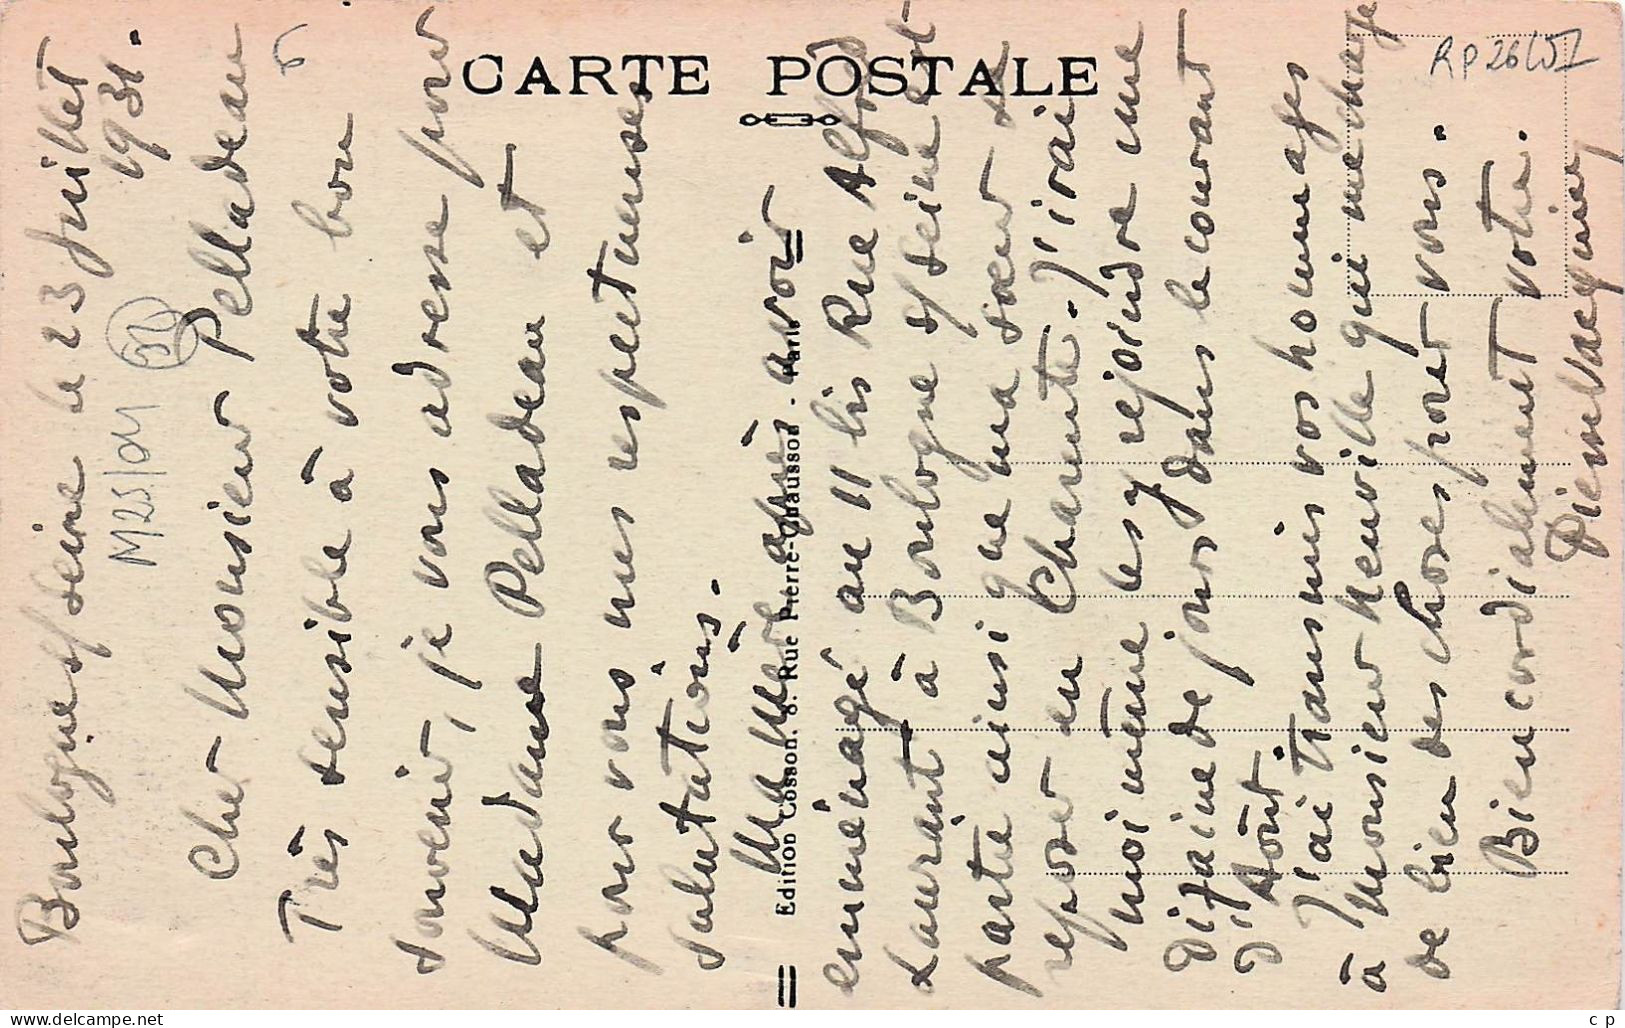 CARTE POSTALE
RP26
M25/04
Boulogne s/ Seine le 23 Juillet
1931.
Cher Monsieur Pelladeau
Très sensible à votre bon
souvenir, je vous adresse pour
Madame Pelladeau et
pour vous mes respectueuses
salutations.
Ma Mère après avoir
emménagé au 11 bis Rue Alfred
Laurant à Boulogne s/ Seine est
partie ainsi que ma soeur se
reposer en Charente. J'irai
moi même les y rejoindre une
dizaine de jours dans le courant
d'Août.
J'ai transmis vos hommages
à Monsieur Neuville qui me charge
de bien des choses pour vous.
Bien cordialement votre.
Pierre Vacquier
Edition Cosson. 8. Rue Pierre-Chausson - Paris